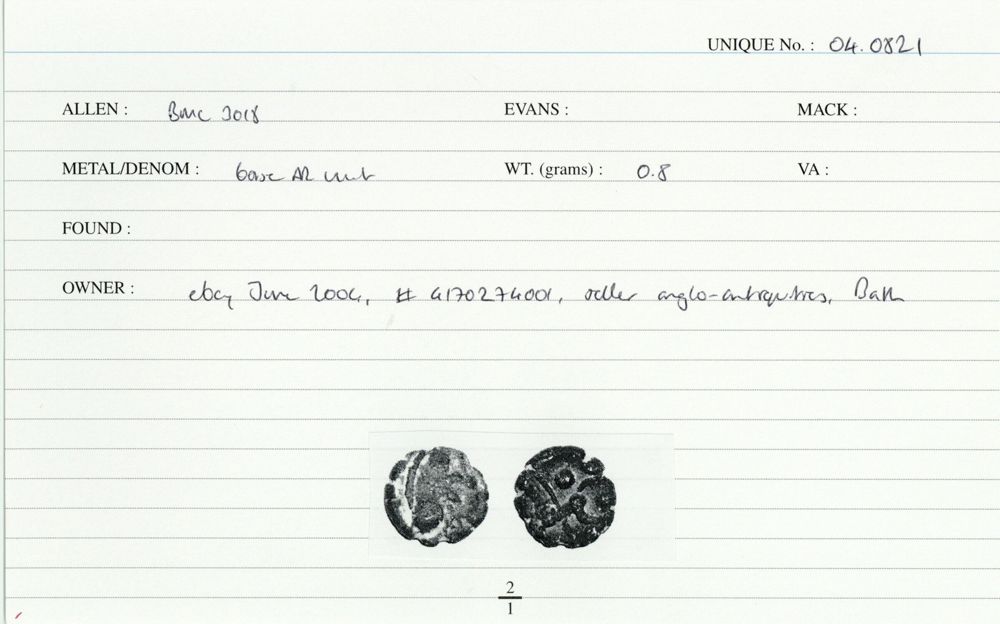 UNIQUE No. : 04.0821
ALLEN : BMC 3018 EVANS : MACK :
METAL/DENOM : base AR unit WT. (grams) : 0.8 VA :
FOUND :
OWNER : ebay June 2004, # 4170274001, seller anglo-antiquities, Bath
2
1